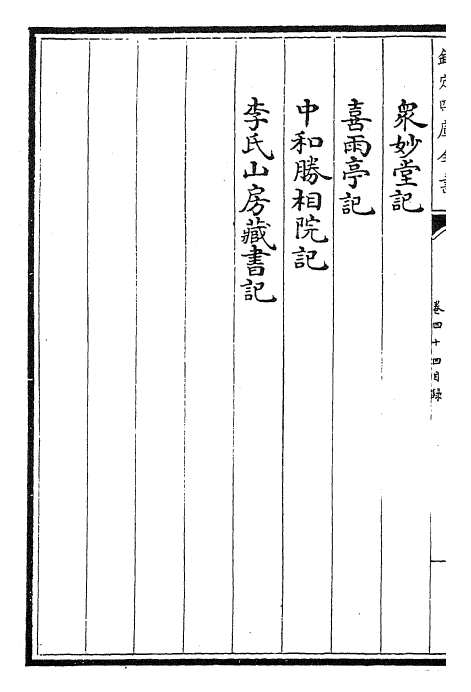 欽定四庫全書
卷四十四目録
衆妙堂記
喜雨亭記
中和勝相院記
李氏山房藏書記